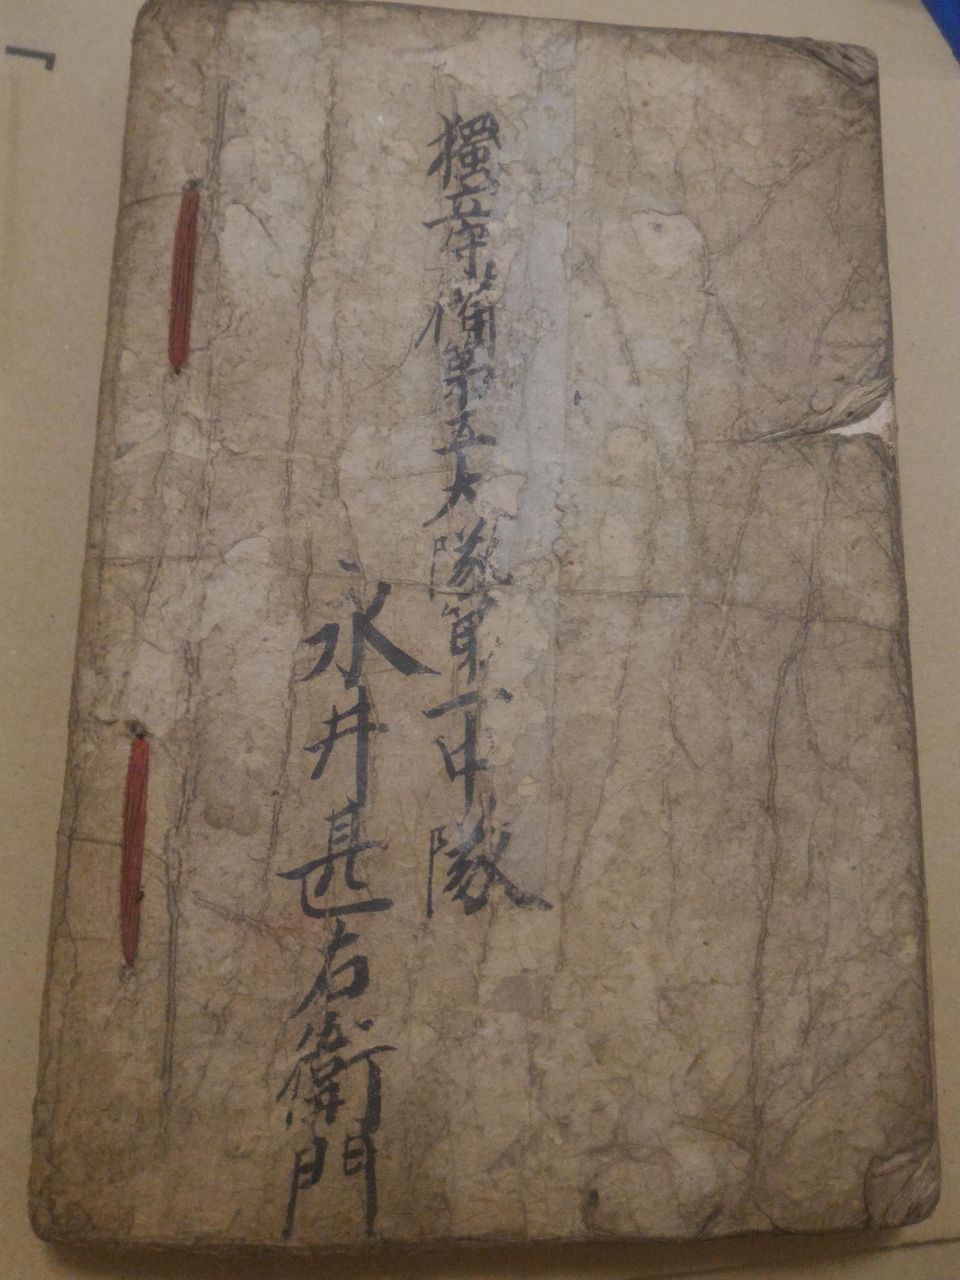 獨立守備第五大隊第一中隊
永井甚右衛門